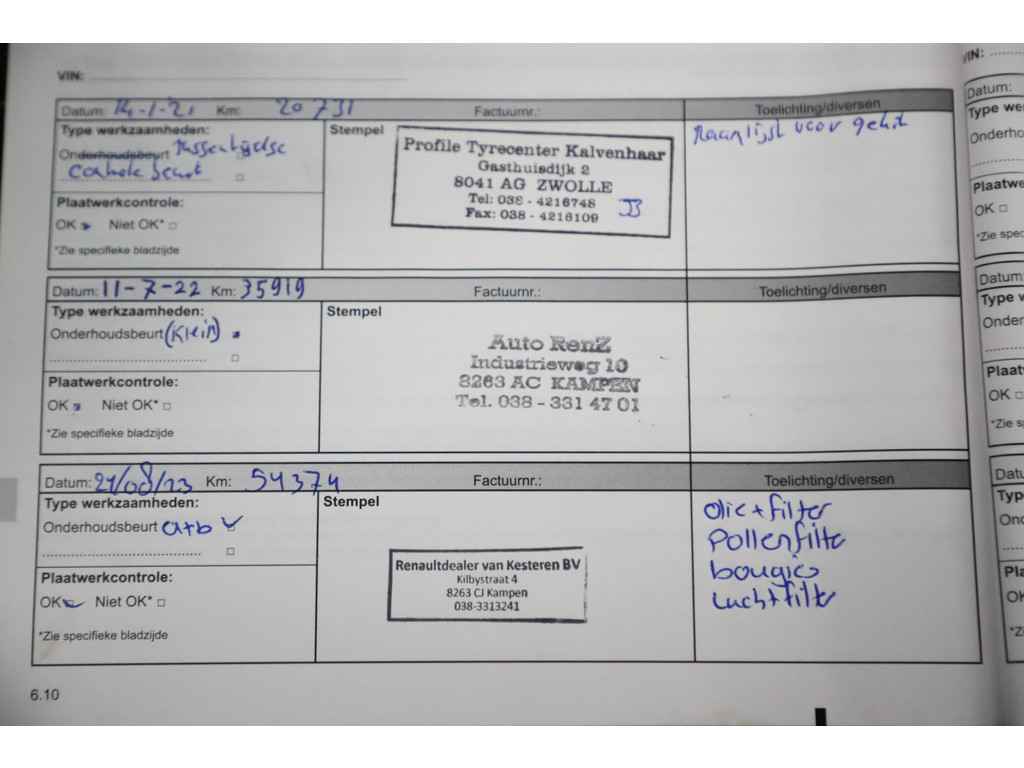 VIN:
Datum: 14-1-21 Km: 20731 Factuurnr.: Toelichting/diversen
Type werkzaamheden: Stempel
Onderhoudsbeurt Tussentijdse
Controle beurt
Plaatwerkcontrole:
OK Niet OK*
*Zie specifieke bladzijde
Profile Tyrecenter Kalvenhaar
Gasthuisdijk 2
8041 AG ZWOLLE
Tel: 038 - 4216748
Fax: 038 - 4216109
voor
Datum: 11-7-22 Km: 35919 Factuurnr.: Toelichting/diversen
Type werkzaamheden: Stempel
Onderhoudsbeurt (Klein)
Plaatwerkcontrole:
OK Niet OK*
*Zie specifieke bladzijde
Auto RenZ
Industrieweg 10
8263 AC KAMPEN
Tel. 038 - 331 47 01
Datum: 21/08/23 Km: 54374 Factuurnr.: Toelichting/diversen
Type werkzaamheden: Stempel
Onderhoudsbeurt a+b
Plaatwerkcontrole:
OK Niet OK*
*Zie specifieke bladzijde
Renaultdealer van Kesteren BV
Kilbystraat 4
8263 CJ Kampen
038-3313241
Olie+filter
Pollenfilter
bougies
Luchtfilter
6.10
VIN:
Datum:
OK
Datum:
OK